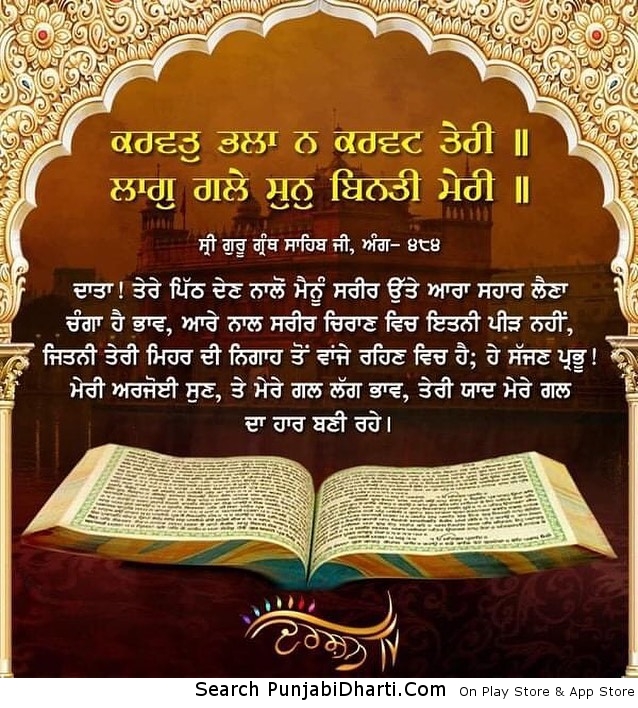 ਕਰਵਤੁ ਭਲਾ ਨ ਕਰਵਟ ਤੇਰੀ ॥
ਲਾਗੁ ਗਲੇ ਸੁਨੁ ਬਿਨਤੀ ਮੇਰੀ ॥
ਸ੍ਰੀ ਗੁਰੂ ਗ੍ਰੰਥ ਸਾਹਿਬ ਜੀ, ਅੰਗ- ੪੮੪
ਦਾਤਾ! ਤੇਰੇ ਪਿੱਠ ਦੇਣ ਨਾਲੋਂ ਮੈਨੂੰ ਸਰੀਰ ਉੱਤੇ ਆਰਾ ਸਹਾਰ ਲੈਣਾ
ਚੰਗਾ ਹੈ ਭਾਵ, ਆਰੇ ਨਾਲ ਸਰੀਰ ਚਿਰਾਣ ਵਿਚ ਇਤਨੀ ਪੀੜ ਨਹੀਂ,
ਜਿਤਨੀ ਤੇਰੀ ਮਿਹਰ ਦੀ ਨਿਗਾਹ ਤੋਂ ਵਾਂਜੇ ਰਹਿਣ ਵਿਚ ਹੈ; ਹੇ ਸੱਜਣ ਪ੍ਰਭੂ!
ਮੇਰੀ ਅਰਜੋਈ ਸੁਣ, ਤੇ ਮੇਰੇ ਗਲ ਲੱਗ ਭਾਵ, ਤੇਰੀ ਯਾਦ ਮੇਰੇ ਗਲ
ਦਾ ਹਾਰ ਬਣੀ ਰਹੇ।
Search PunjabiDharti.Com On Play Store & App Store